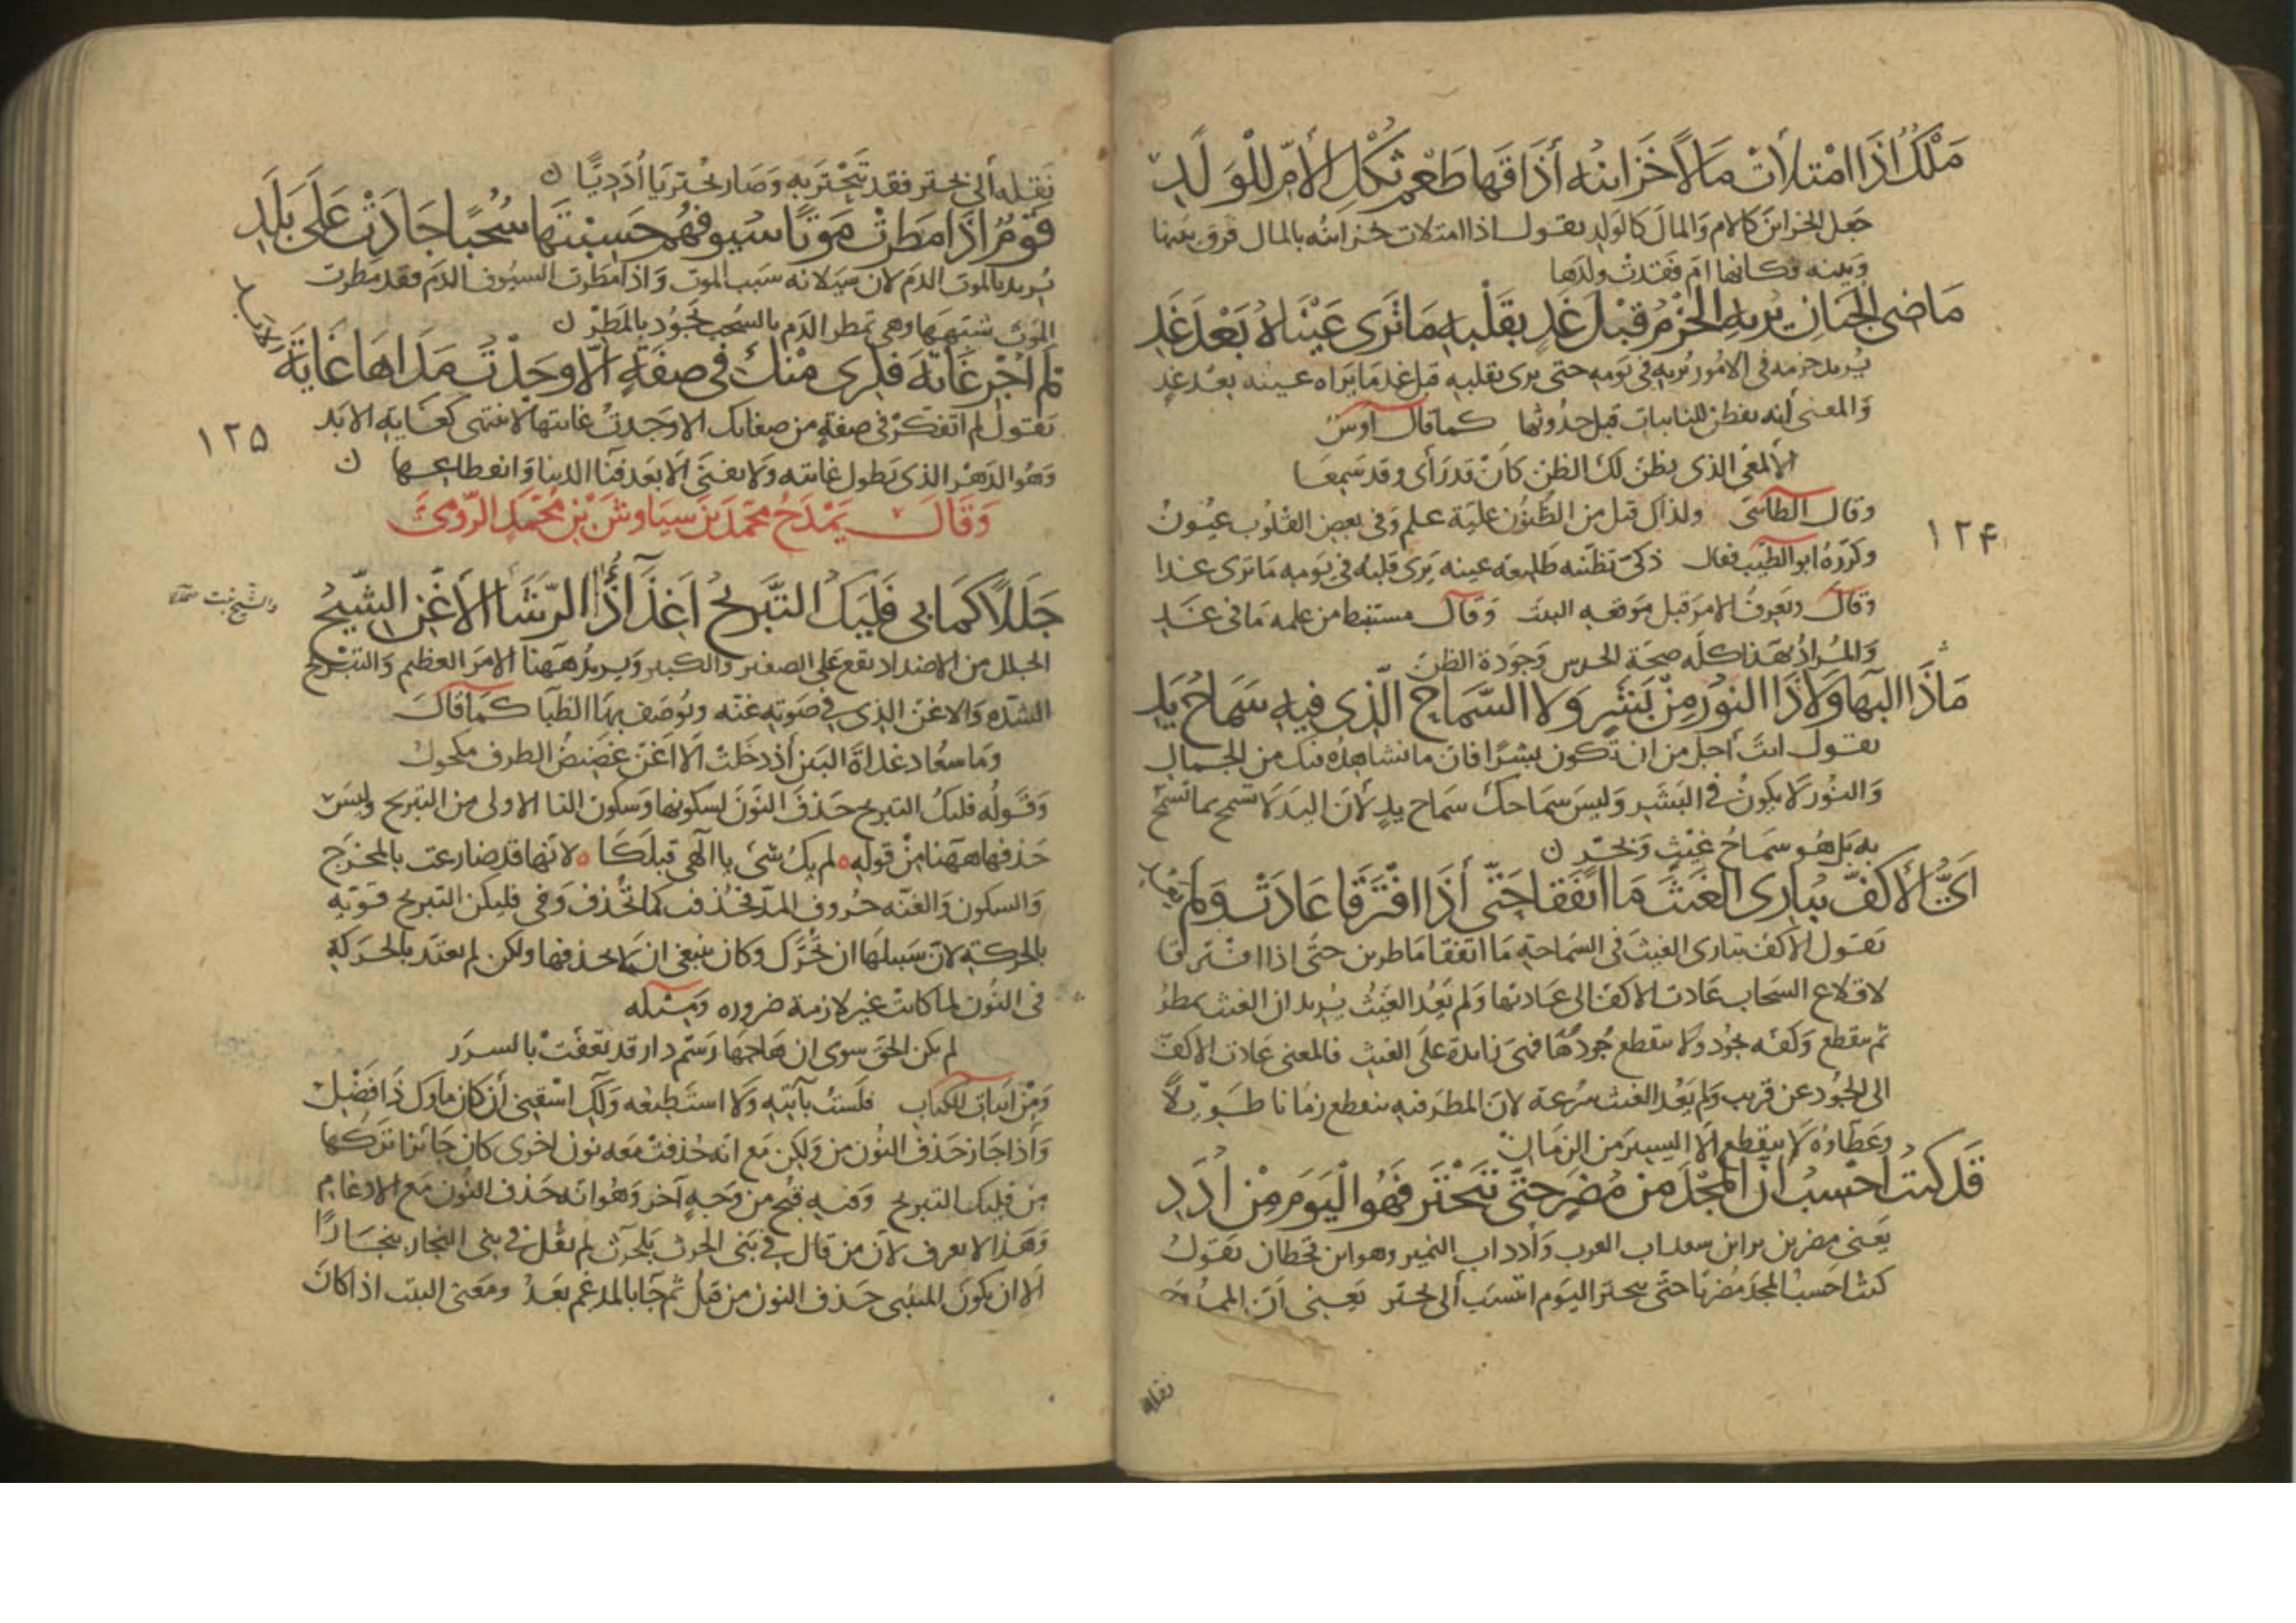 مَلْكٌ اذَا امْتَلأَتْ مَالاً خَزَائنُه أَذَاقَهَا طَعْمَ ثُكْلِ الأُمِّ لِلْوَلَدِ
جَعل الخزاين كالام وَالمالَ كالولدِ يقول اذا امتلات خزاينُه بالمال فرق بينها
وَبينه فكانها امٌ فقدتْ ولدَها
مَاضِى الجَنانِ يُرِيهِ الحَزْمُ قَبْلَ غَدٍ بقَلْبِهِ مَا تَرَى عَيْنَاهُ بَعْدَ غَدِ
يُريد حزمه فى الامُور يُريه فى يَومه حتى يرى بقلبه قبل غد مَا يَراه عينه بعْد غدٍ
وَالمعنى أنه يفطن للنايبات قبل حدُوثها كما قال اوسٌ
الألمعىّ الذى يظنّ لَكَ الظنّ كَاَنْ قد رَأى وقد سَمِعَا
وقال الطاءىّ ولذاك قيل من الظُنُون جليّة علم وَفى بعض القلُوب عيُونُ
١٢٤
وكررَهُ ابو الطيّب فقال ذكىّ تظنّنه طليعة عينه يَرى قلبه فى يَومه مَا ترى غدا
وَقالَ ويَعرِفُ الامرَ قبل مَوقعه البيت وَقال مستنبط من علمه مَا فى غَدٍ
وَالمُرادُ بهَذا كلّه صحّة الحدس وَجَودة الظنّ
مَاذَا البَهَا وَلاَ ذَا النُورُ مِنْ بَشَرٍ وَلا السَّمَاحُ الّذِى فِيهِ سَمَاحُ يَدِ
يقول انتَ أجل من ان تكون بشرًا فانّ ما نشاهِدُه منك من الجمال
وَالنُور لاَ يكونُ فى البَشَر وَليسَ سمَاحكَ سَماح يدٍ لأنّ اليدَ لاَ تسمح بما تسمَح
به بَل هُو سَمَاحُ غيْثٍ وَبحرٍ ن
اَىُّ الأَكُفِّ تُبَارِى الغَيْثَ مَا اتَّفَقَا حَتَّى أذَا افْتَرَقَا عَادَتْ وَلَمْ يَعُدِ
يَقول اىّ الاكف تبارى الغيثَ فى السَماحة مَا اتفقا ماطرين حتّى اذا افترقا
لاقلاع السَحاب عَادت الاكفّ الى عَادتها وَلم يَعُد الغَيثُ يُريد ان الغيث يمطرُ
ثم ينقطع وَكفّه تجُود ولا ينقطع جُودُهَا فهىَ زايدة علَى الغيث فالمعنى عَادت الاكفّ
الى الجُود عن قريب وَلم يَعُد الغيث سُرعة لانّ المطر قد ينقطع زمانا طويلًا
وعَطاوُه لاَ ينقطع الاّ اليسيرَ من الزمَان
قَدْ كُنْتُ احْسِبُ انَّ المَجْدَ مِن مُضَرٍ حتّى تَبَحْتَرَ فَهُوَ الْيَومَ مِنْ اُدَدِ
يَعنى مضر بن نزار ابن معد اب العرب وَأدد اب اليمن وهو ابن قحطان يَقولُ
كنتُ احسبُ المجدَ مُضريّا حتّى تبحتر اليَوم انتسَبَ ألى بحتر يَعنى اَنّ الممدُوح
نقله
نَقله ألى بحتر فقد تبَحْتَر به وَصَار بحُتريّا أُدَديًّا ن
قَوْمٌ اذَا مَطَرَتْ مَوْتًا سُيُوفُهُم حَسِبْتَهَا سُحُبًا جَادَتْ عَلَى بَلَدِ
يُريد بالموت الدَم لان سيَلانه سَببُ الموت وَاذا مَطَرت السيُوف الدَم فقد مطرت
المَوتَ شبّههَا وهى تمطر الدَم بالسُحُب تجَوُد بالمَطرْ ن
لَمْ اُجْرِ غَايَةَ فِكْرِى مِنْكَ فِى صِفَةٍ الاّ وَجَدْتُ مَدَاهَا غَايَةَ الأَبَدِ
يَقول لم اتفكّرْ فى صفةٍ من صفاتك الا وَجَدتُ غايتها لا تنتهى كغَايَةِ الابَد
١٢٥
وَهُو الدَهْر الذى يَطول غايته وَلا يفنَى الا بَعد فنَا الدنيا وَانقطاعهَا ن
وَقَالَ يَمْدَحُ محَمّدَ بنَ سِيَاوَشَ بْنِ مُحَمَّدٍ الرّومِىَّ
جَلَلاً كَمَا بِى فَلْيَكُ التَّبْرِيحُ اَغِذَاءُ ذَا الرّشَأِ الأَغَنِّ الشِّيحُ
والشِّيحُ نبت
الجلل من الاضداد يقع عَلى الصغير وَالكبير وَيريدُ ههنا الامرَ العظيم وَالتبْريح
الشدّه وَالاغنّ الذى فى صَوته غنّه ويُوصَف بهَا الظبا كمَا قالَ
وَمَا سعُاد غداةَ البَين أذ رحَلت الاّ اغنّ غضِيضُ الطرف مكحولُ
وَقَولُه فليكُ التبريح حَذفَ النونَ لسكونها وَسكون التا الاولى من التبريح وليسَ
حَذفها ههَنا مِنْ قوله ه لم يكُ شىءٌ يا آلهى قبلكَا ه لاَنهَا قد ضارعت بالمخرَج
وَالسكون وَالغنّه حرُوف المدّ فحُذفت كما تحُذف وَفى فليكن التبريح قويّةٌ
بالحركة لانّ سَبيلهَا ان تُحرّك وكان ينبغى ان لاَ يحذفها ولكن لم يعتدّ بالحَركة
فى النُون لما كانتْ غير لازمة ضروره وَمثله
لم يكن الحقّ سوى ان هَاجَهَا رَسَم دار قد تعَفّتْ بالسرَر
وَمْن ابيات الكتاب فلَستُ بآتيه وَلاَ استَطيعُه وَلَاكِ اسْقِنِى أن كانَ ماوُكَ ذا فَضْلِ
وَأذا جَازَ حَذفُ النُون من وَلكن مَع انّه حُذفت مَعه نون اخرى كان جَائزًا تركها
من فليك التبريح وَفيه قُبح من وَجهٍ آخر وَهُو انه حَذف النُون مَع الادغام
وَهَذا لا يعرف لاَنّ من قال فى بَنى الحرث بَلحرث لم يقُل فى بنى النجار بنجّارًا
الاّ ان يَكونَ المتنبى حَذف النون من قَبلُ ثم جَا بالمدغم بَعدُ ومَعنى البيت اذا كانَ